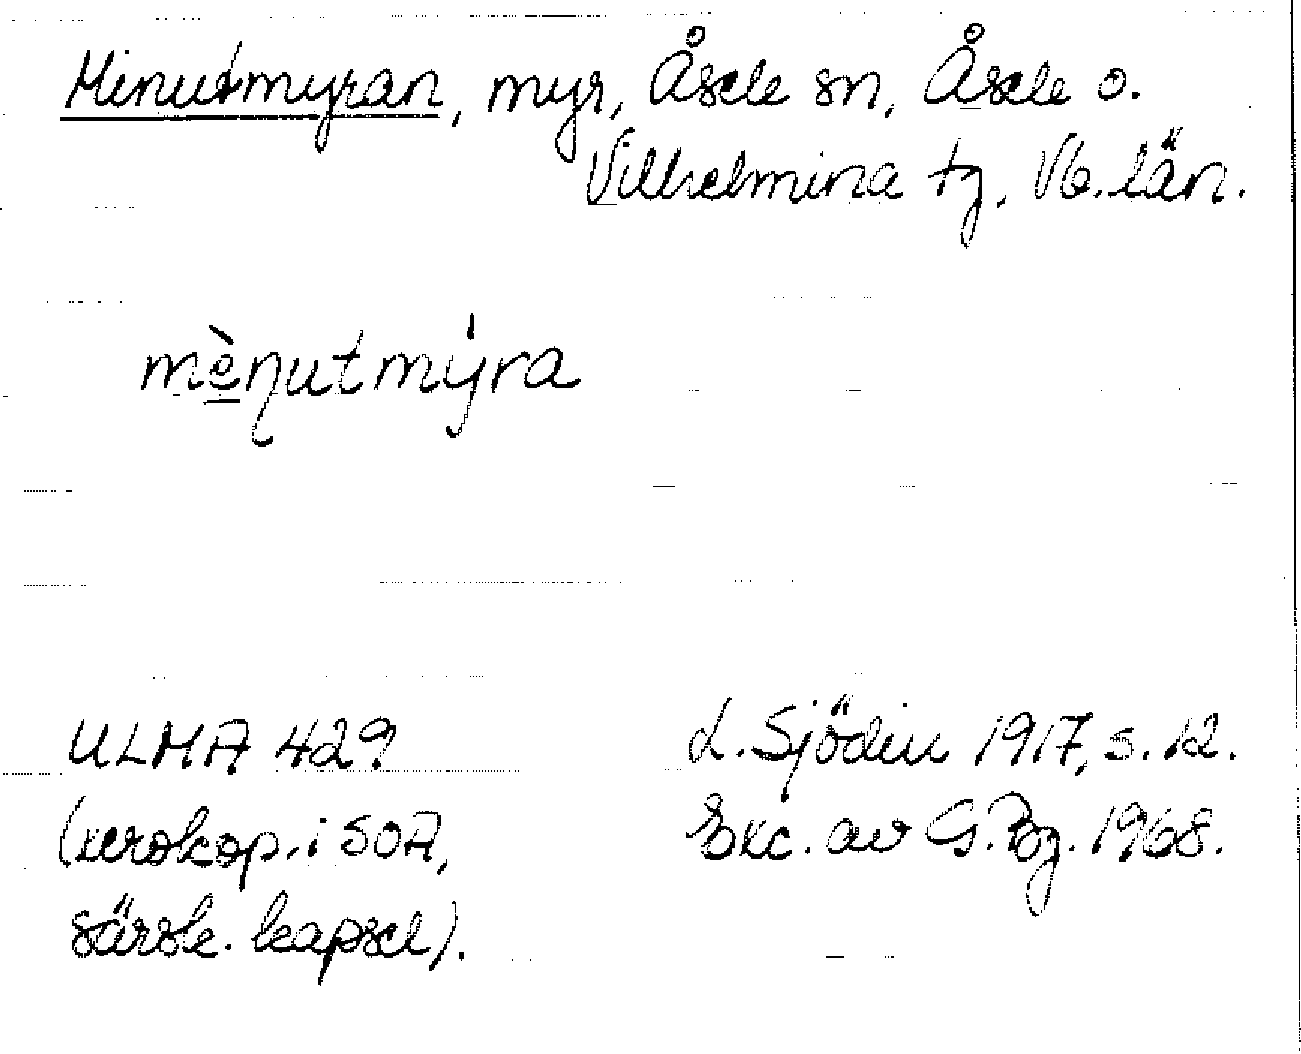 Minutmyran, myr, Åsele sn, Åsele o.
Vilhelmina tg, Vb. län.
mè̲ŋutmýra
ULMA 429
L. Sjödin 1917, s. 12.
(xerokop. i SOA,
Exc. av G. Bg. 1968.
särsk. kapsel).